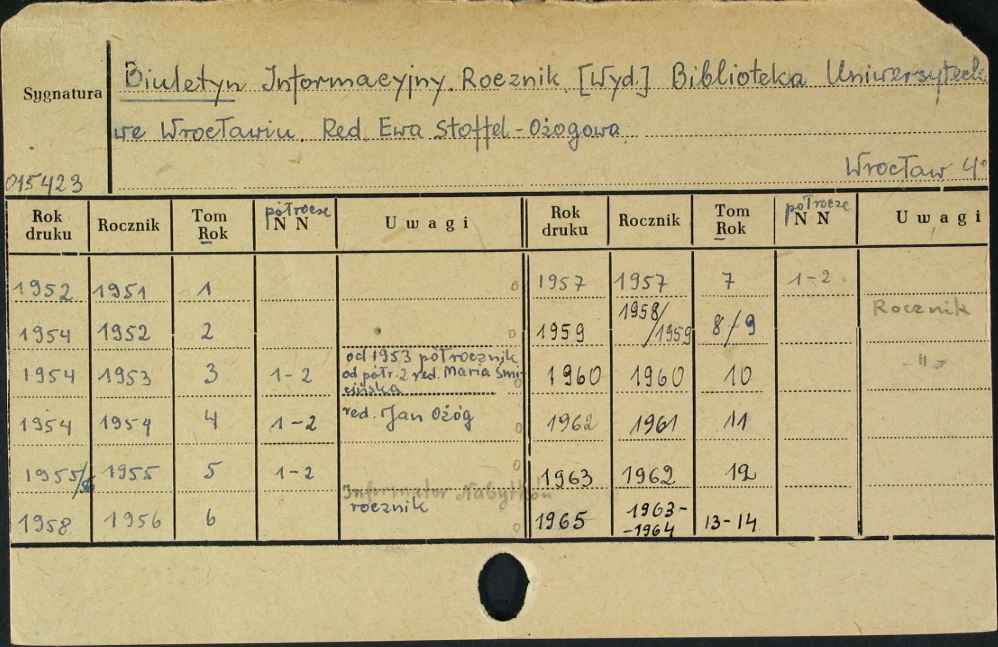 Biuletyn Informacyjny. Rocznik. [Wyd.] Biblioteka Uniwersyteck.
Sygnatura
we Wrocławiu. Red. Ewa Stoffel-Ożogowa
015423 Wrocław 4°
Rok druku Rocznik Tom Rok półrocze NN Uwagi Rok druku Rocznik Tom Rok półrocze NN Uwagi
1952 1951 1 1957 1957 7 1-2
1954 1952 2 1959 1958/1959 8/9 Rocznik
1954 1953 3 1-2 od 1953 półrocznik 1960 1960 10 -"-
od półr. 2 red. Maria Śmi-
cińska
1954 1954 4 1-2 red. Jan Ożóg 1962 1961 11
1955/56 1955 5 1-2 1963 1962 12
Informator Nabytków
1958 1956 6 rocznik 1965 1963-
-1964 13-14